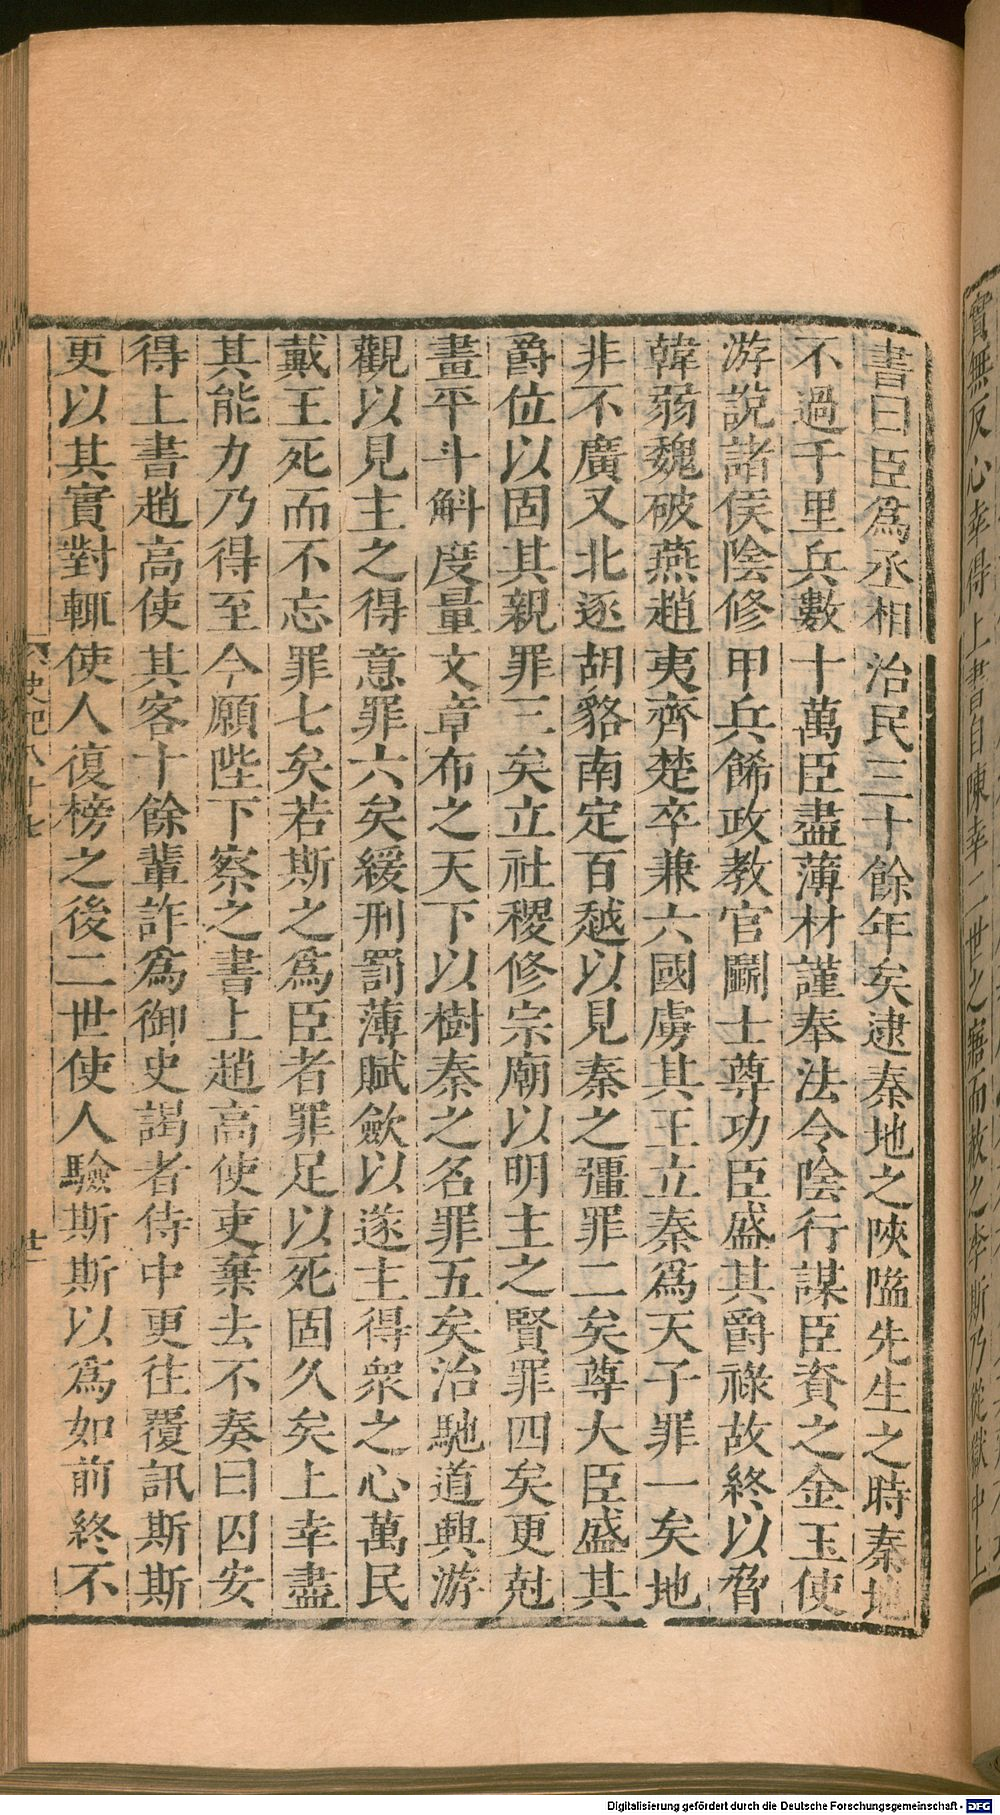 實無反心幸得上書自陳幸二世之寤而赦之李斯乃從獄中上
書曰臣爲丞相治民三十餘年矣逮秦地之陜隘先生之時秦地
不過千里兵數十萬臣盡薄材謹奉法令陰行謀臣資之金玉使
游說諸侯陰修甲兵餙政教官鬭士尊功臣盛其爵祿故終以脅
韓弱魏破燕趙夷齊楚卒兼六國虜其王立秦爲天子罪一矣地
非不廣又北逐胡貉南定百越以見秦之彊罪二矣尊大臣盛其
爵位以固其親罪三矣立社稷修宗廟以明主之賢罪四矣更尅
畫平斗斛度量文章布之天下以樹秦之名罪五矣治馳道興游
觀以見主之得意罪六矣緩刑罰薄賦歛以遂主得衆之心萬民
戴王死而不忘罪七矣若斯之爲臣者罪足以死固久矣上幸盡
其能力乃得至今願陛下察之書上趙高使吏棄去不奏曰囚安
得上書趙高使其客十餘輩詐爲御史謁者侍中更往覆訊斯斯
更以其實對輒使人復榜之後二世使人驗斯斯以爲如前終不
史記八十七 廿一
Digitalisierung gefördert durch die Deutsche Forschungsgemeinschaft - DFG